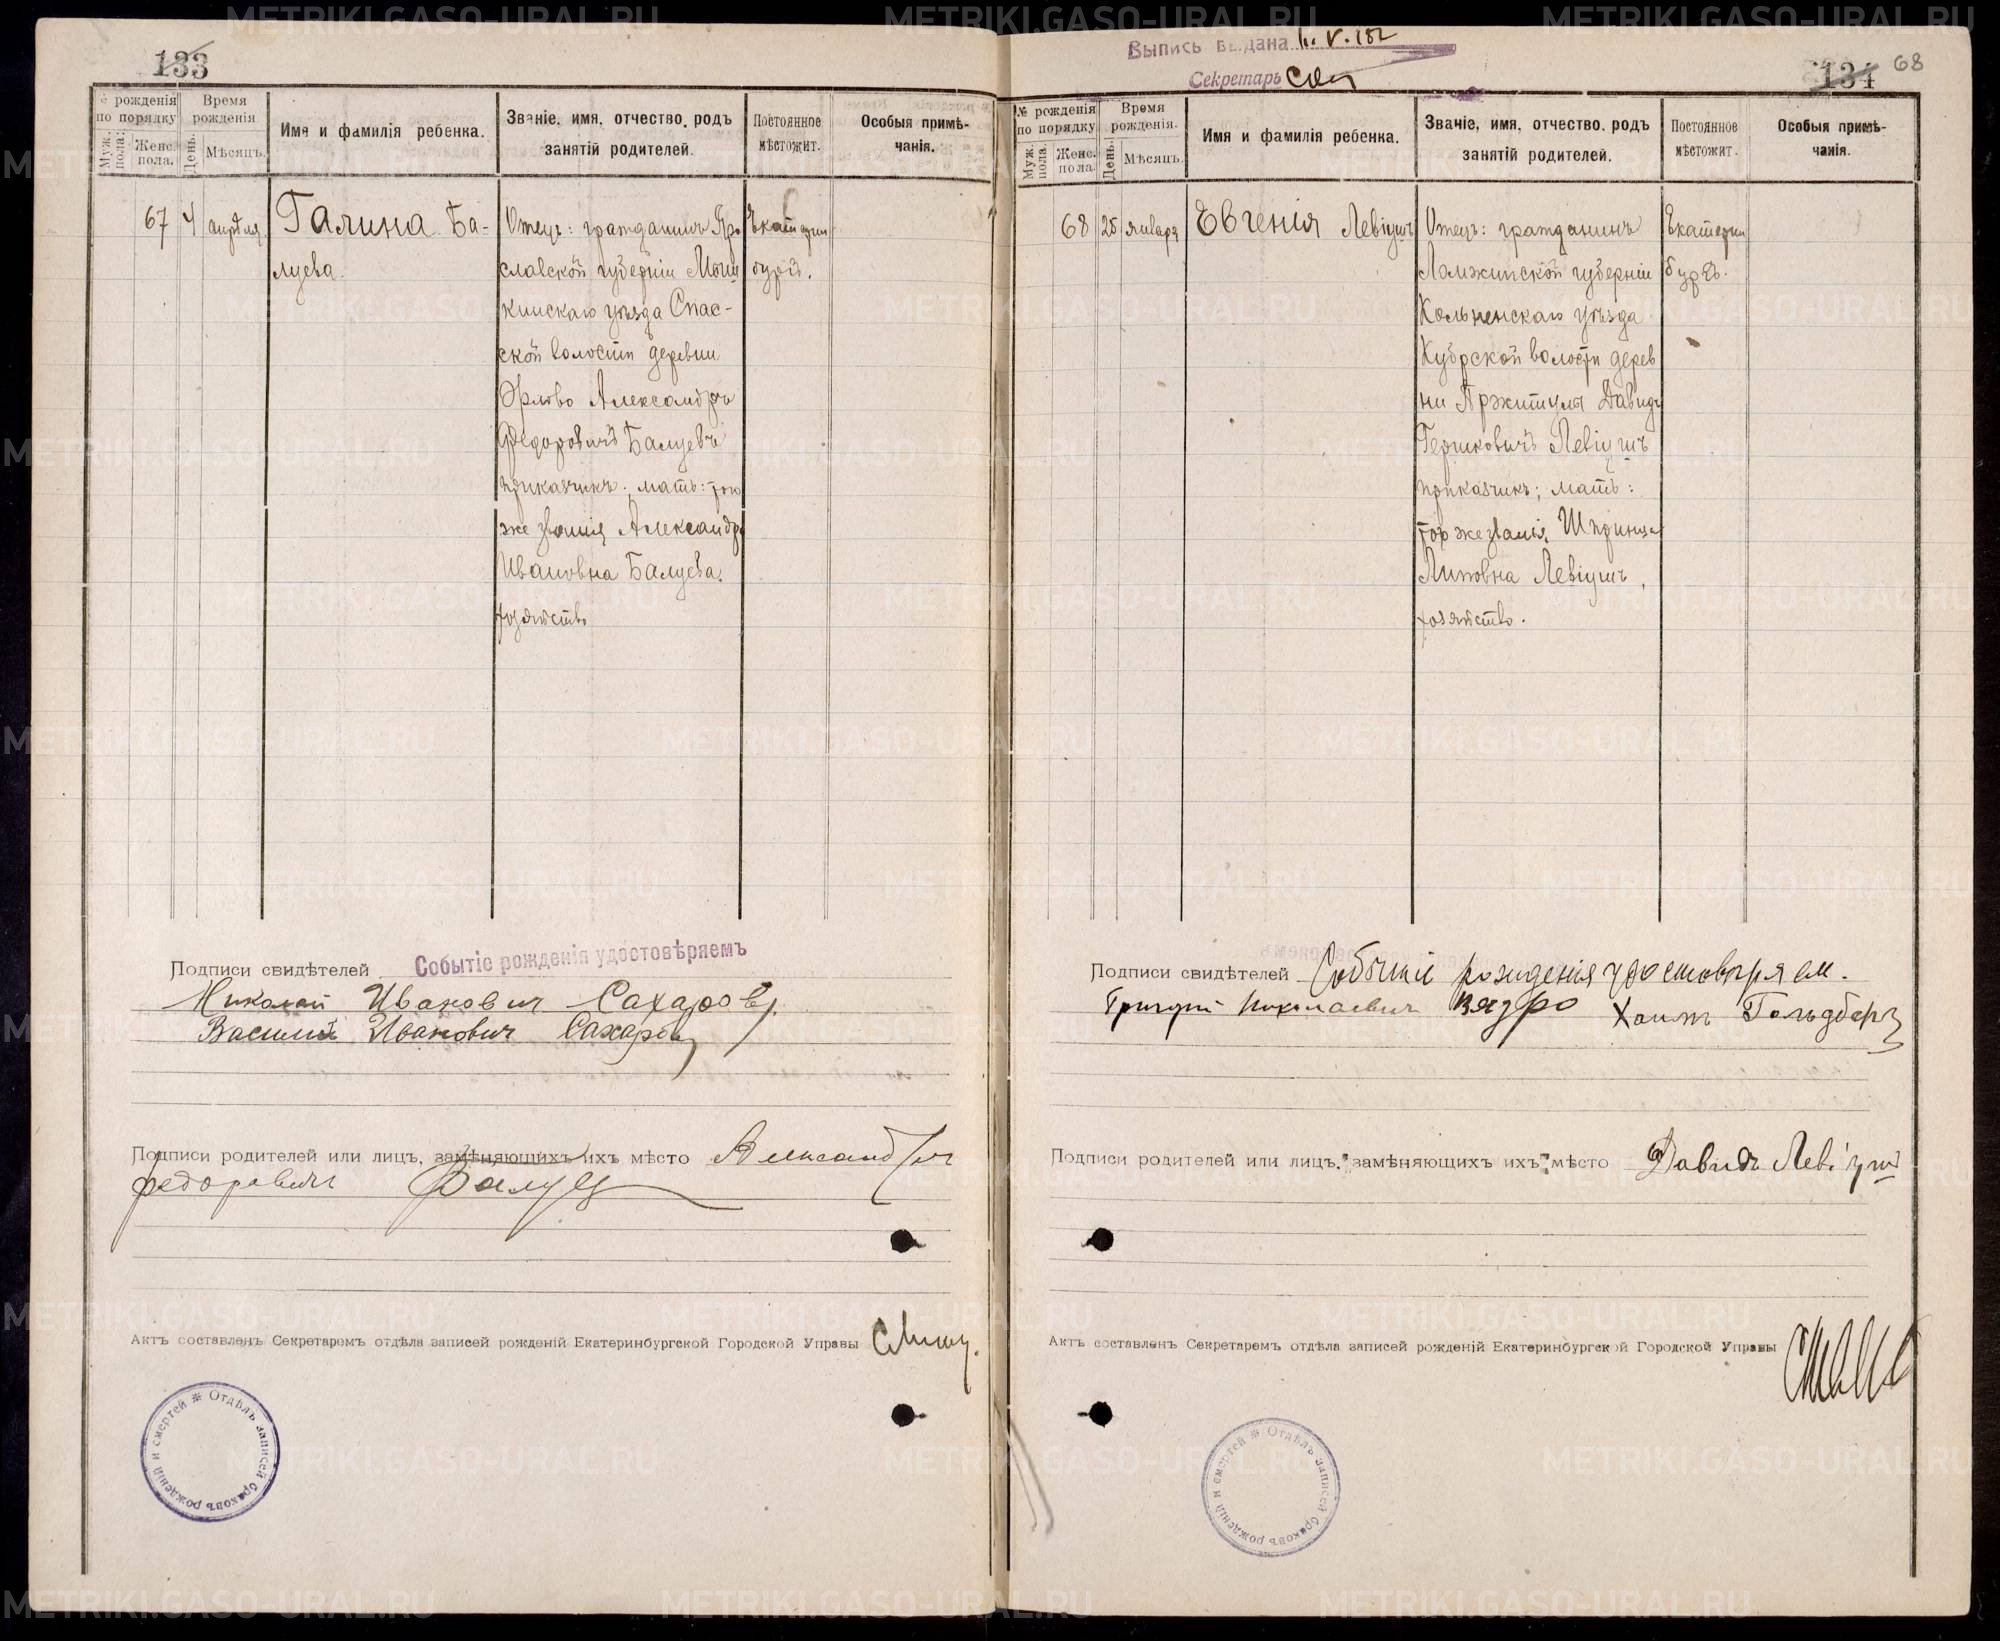 133
№ рожденія по порядку
Муж. пола.
Женс. пола.
Время рожденія
День.
Мѣсяцъ.
Имя и фамилія ребенка.
Званіе, имя, отчество, родъ занятій родителей.
Постоянное мѣстожит.
Особыя примѣчанія.
67 4 апрѣля
Галина Ба-
луева.
Отецъ: гражданинъ Яро
славской губерніи Мыш
кинскаго уѣзда Спас-
ской волости деревни
Орлово Александръ
Федоровичъ Балуевъ
приказчикъ; мать: того
же званія Александра
Ивановна Балуева.
хозяйство
Екатерин
бургъ.
Подписи свидѣтелей Событіе рожденія удостовѣряемъ
Николай Ивановичъ Сахаровъ.
Василий Ивановичъ Сахаровъ
Подписи родителей или лицъ, замѣняющихъ ихъ мѣсто Александръ
федоровичъ Балуев
Актъ составленъ Секретаремъ отдѣла записей рожденій Екатеринбургской Городской Управы
Отдѣлъ записей браковъ рожденій и смертей
Выпись выдана
Секретарь
134 68
№ рожденія по порядку
Муж. пола.
Женс. пола.
Время рожденія.
День.
Мѣсяцъ.
Имя и фамилія ребенка.
Званіе, имя, отчество, родъ занятій родителей.
Постоянное мѣстожит.
Особыя примѣчанія.
68 25 января
Евгенія Левіушъ
Отецъ: гражданинъ
Ломжинской губерніи
Кольненскаго уѣзда
Кубрской волости дерев
ни Пржитуля Давидъ
Гершковичъ Левіушъ
приказчикъ; мать:
того же званія, Шпринца
Липовна Левіушъ,
хозяйство.
Екатерин
бургъ.
Подписи свидѣтелей Событие рождения удостовѣряем.
Григорий Николаевич Хаимъ Гольдберг
Подписи родителей или лицъ, замѣняющихъ ихъ мѣсто Давидъ Левіуш
Актъ составленъ Секретаремъ отдѣла записей рожденій Екатеринбургской Городской Управы
Отдѣлъ записей браковъ рожденій и смертей
METRIKI.GASO-URAL.RU